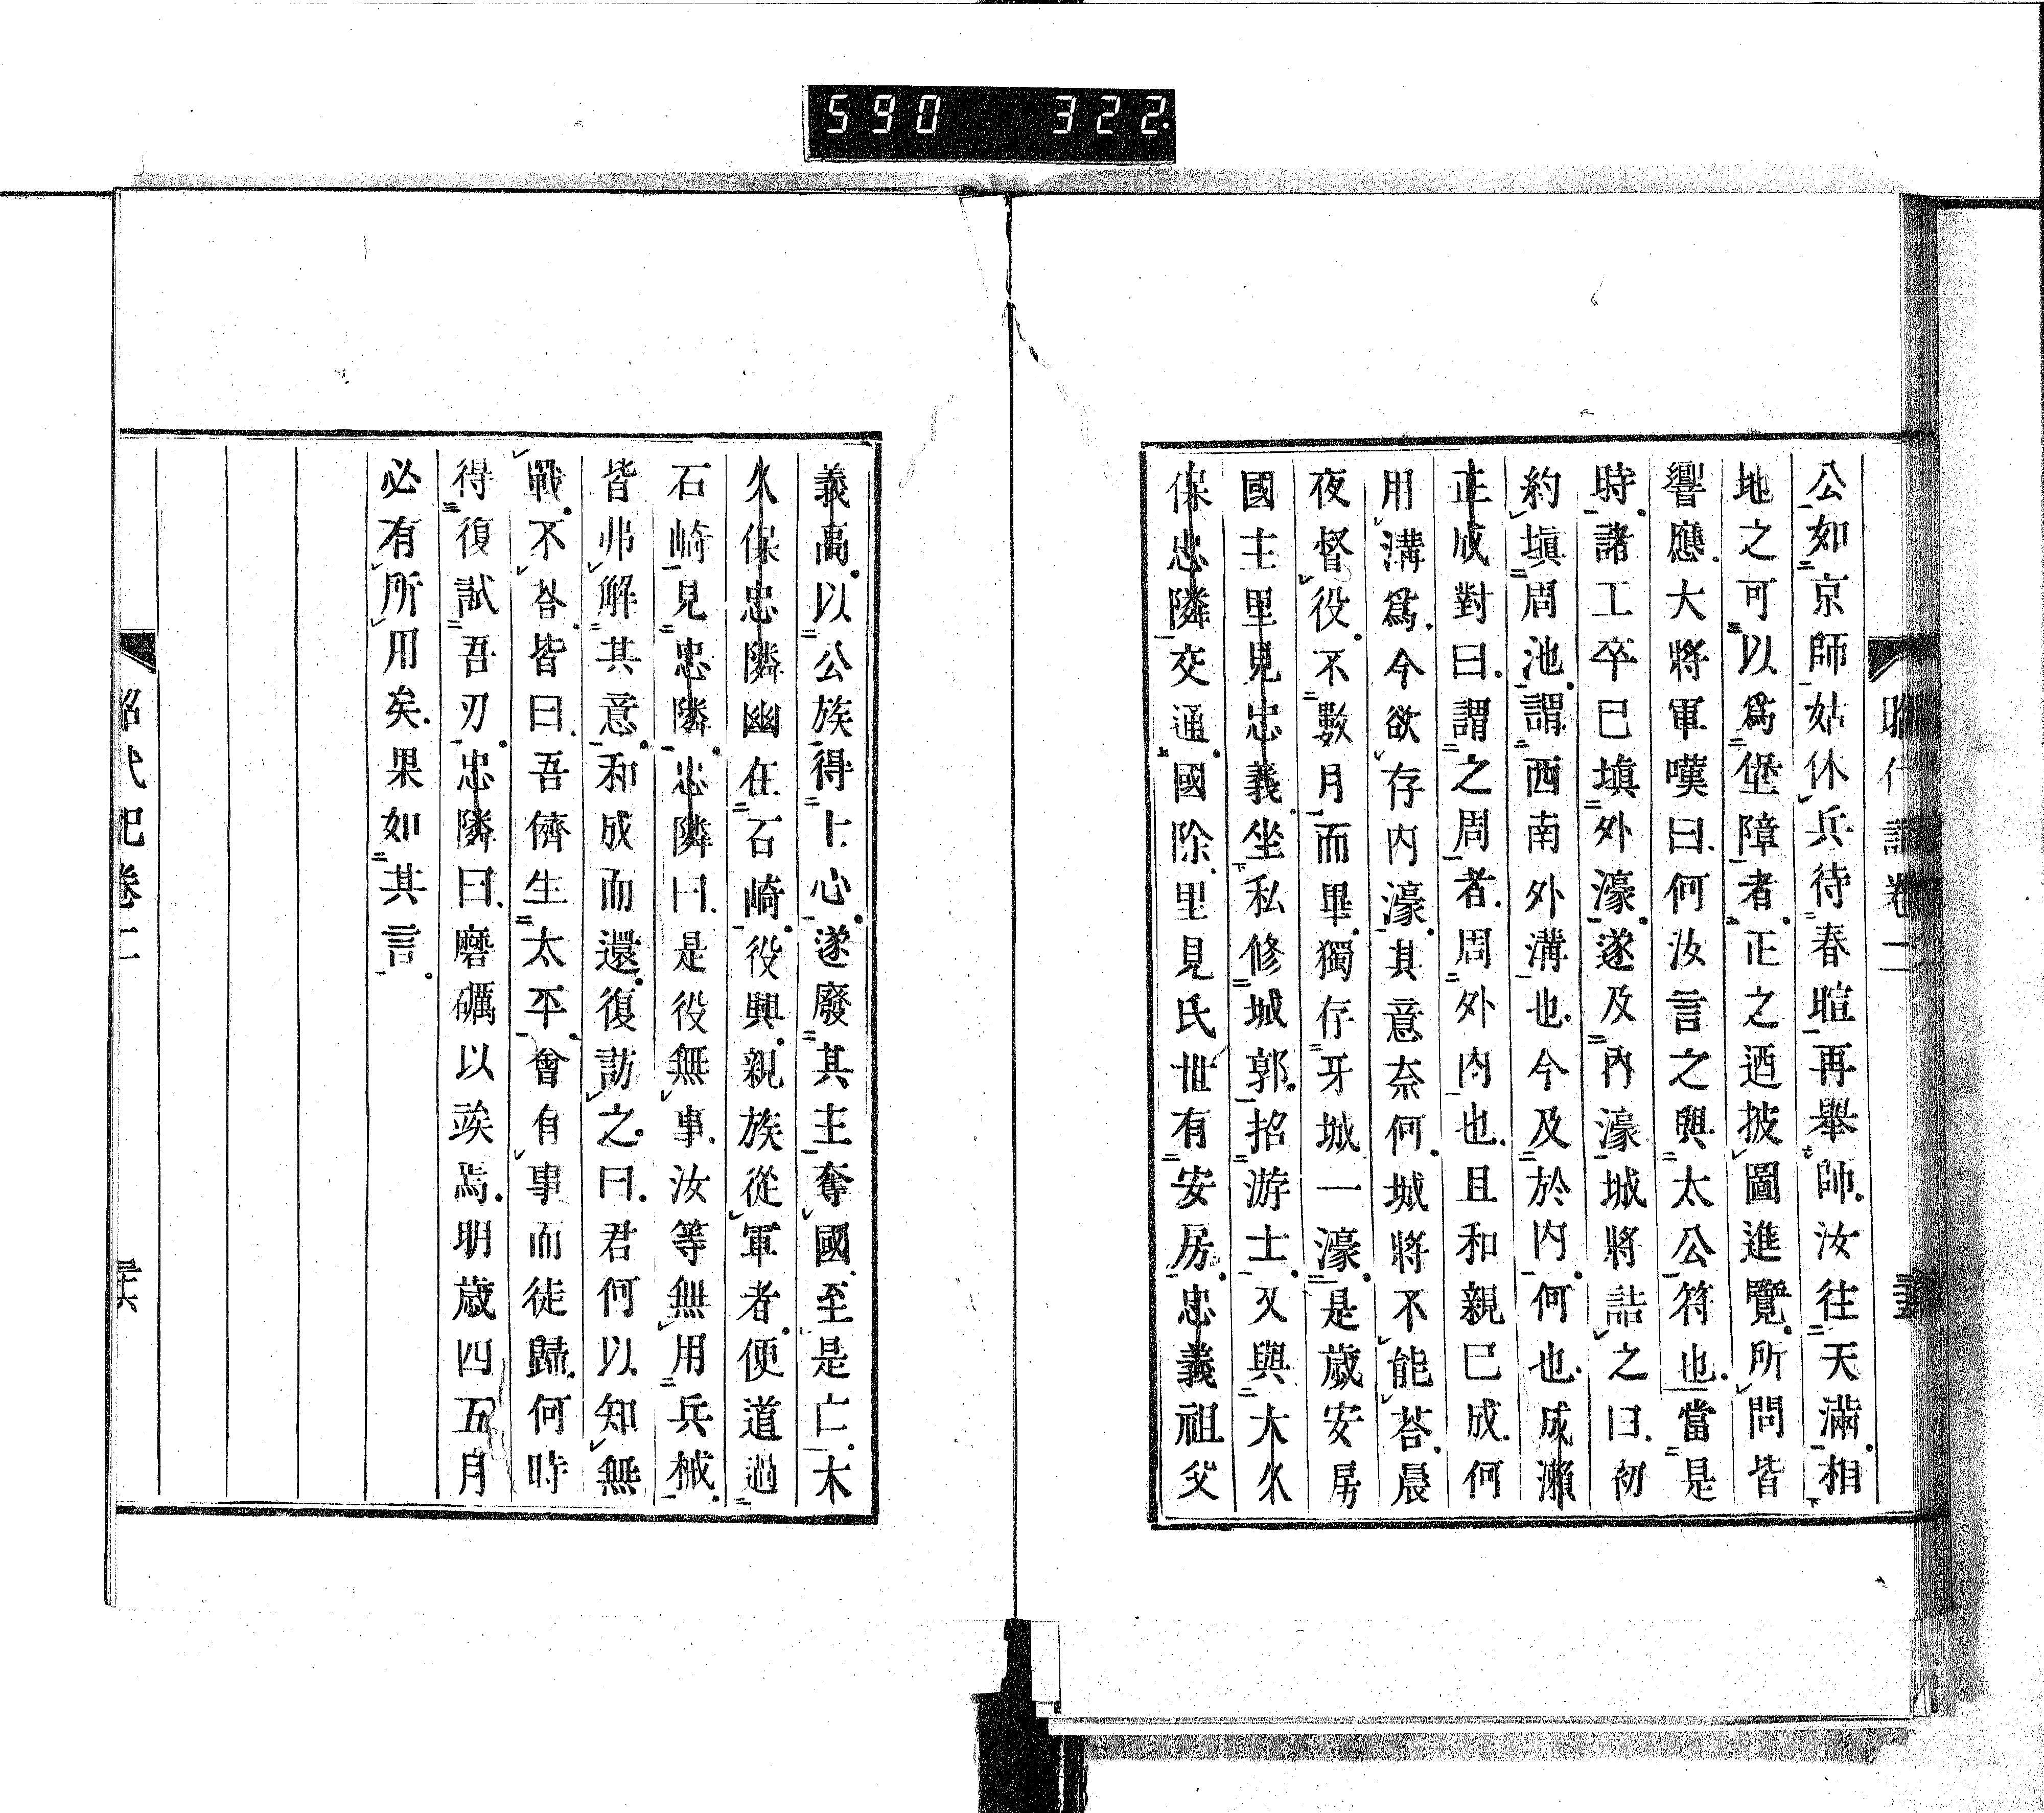 590 322
昭代記卷二
公如京師姑休兵待春暄再舉師汝往天滿相
地之可以爲堡障者正之迺披圖進覽所問皆
響應大將軍嘆曰何汝言之與太公符也當是
時諸工卒已塡外濠遂及內濠城將詰之曰初
約塡周池謂西南外溝也今及於內何也成瀨
正成對曰謂之周者周外內也且和親已成何
用溝爲今欲存內濠其意奈何城將不能荅晨
夜督役不數月而畢獨存牙城一濠是歲安房
國主里見忠義坐私修城郭招游士又與大久
保忠隣交通國除里見氏世有安房忠義祖父
義高以公族得士心遂廢其主奪國至是亡大
久保忠隣幽在石崎役興親族從軍者便道過
石崎見忠隣忠隣曰是役無事汝等無用兵械
皆弗解其意和成而還復訪之曰君何以知無
戰不荅皆曰吾儕生太平會有事而徒歸何時
得復試吾刃忠隣曰磨礪以竢焉明歲四五月
必有所用矣果如其言
昭代記卷二